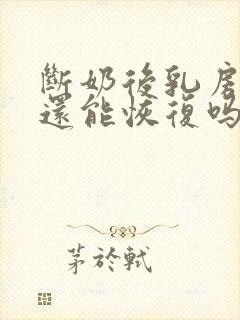 斷奶後乳房
還能恢復嗎
茅於軾